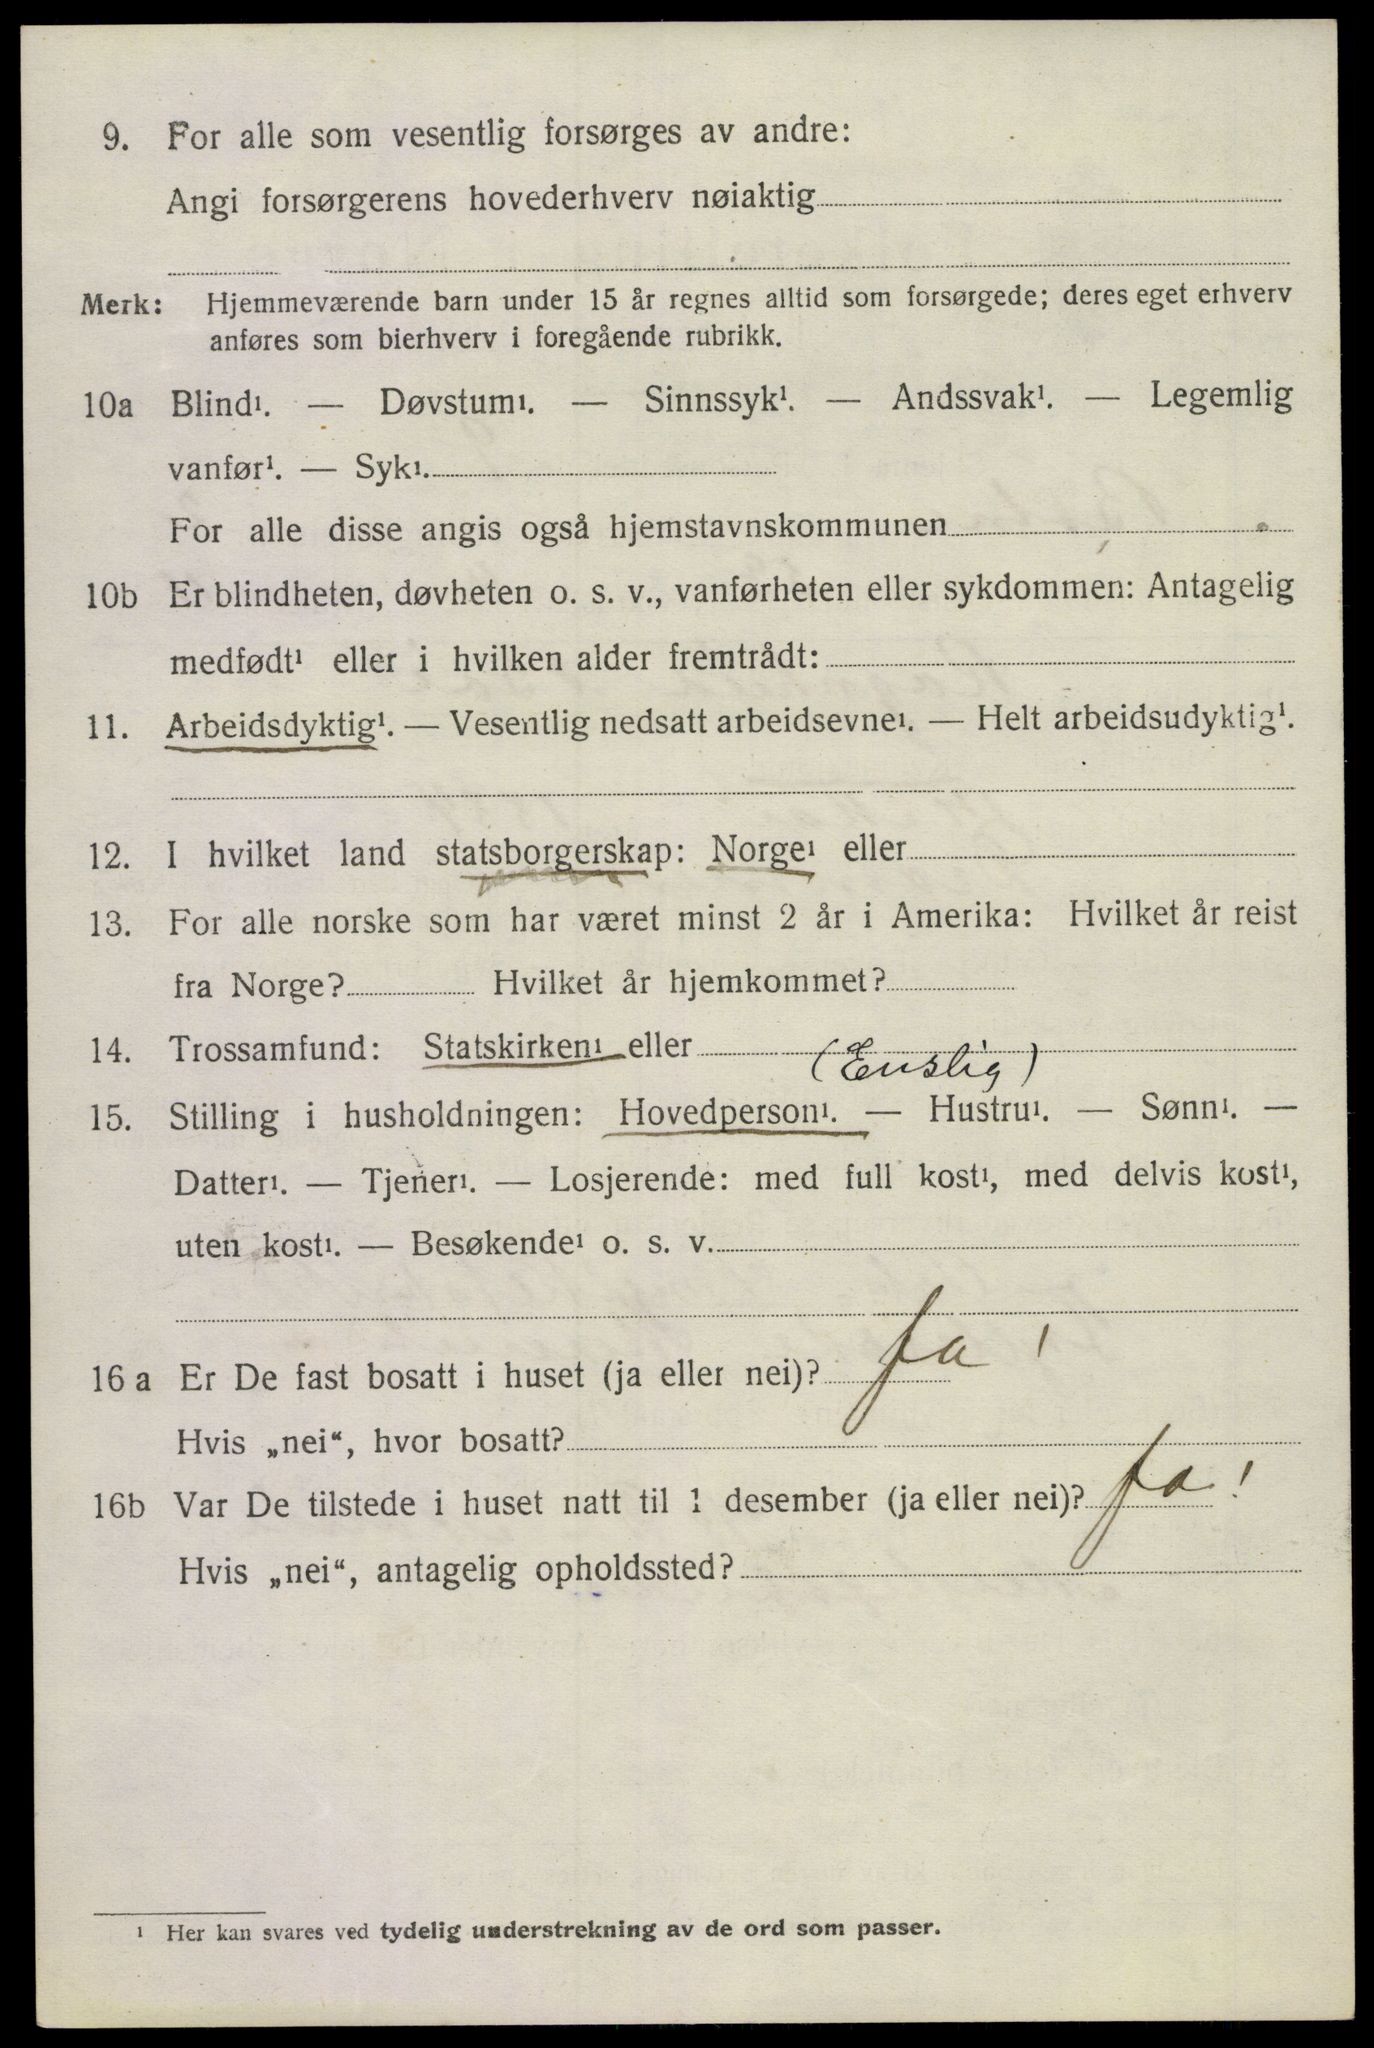 9. For alle som vesentlig forsørges av andre:
Angi forsørgerens hovederhverv nøiaktig
Merk: Hjemmeværende barn under 15 år regnes alltid som forsørgede; deres eget erhverv
anføres som bierhverv i foregående rubrikk.
10a Blind¹. — Døvstum¹. — Sinnssyk¹. — Andssvak¹. — Legemlig
vanfør¹. — Syk¹.
For alle disse angis også hjemstavnskommunen
10b Er blindheten, døvheten o. s. v., vanførheten eller sykdommen: Antagelig
medfødt¹ eller i hvilken alder fremtrådt:
11. Arbeidsdyktig¹. — Vesentlig nedsatt arbeidsevne¹. — Helt arbeidsudyktig¹.
12. I hvilket land statsborgerskap: Norge¹ eller
13. For alle norske som har været minst 2 år i Amerika: Hvilket år reist
fra Norge? Hvilket år hjemkommet?
14. Trossamfund: Statskirken¹ eller
(Enslig)
15. Stilling i husholdningen: Hovedperson¹. — Hustru¹. — Sønn¹. —
Datter¹. — Tjener¹. — Losjerende: med full kost¹, med delvis kost¹,
uten kost¹. — Besøkende¹ o. s. v.
16 a Er De fast bosatt i huset (ja eller nei)? ja !
Hvis „nei“, hvor bosatt?
16b Var De tilstede i huset natt til 1 desember (ja eller nei)? ja !
Hvis „nei“, antagelig opholdssted?
¹ Her kan svares ved tydelig understrekning av de ord som passer.